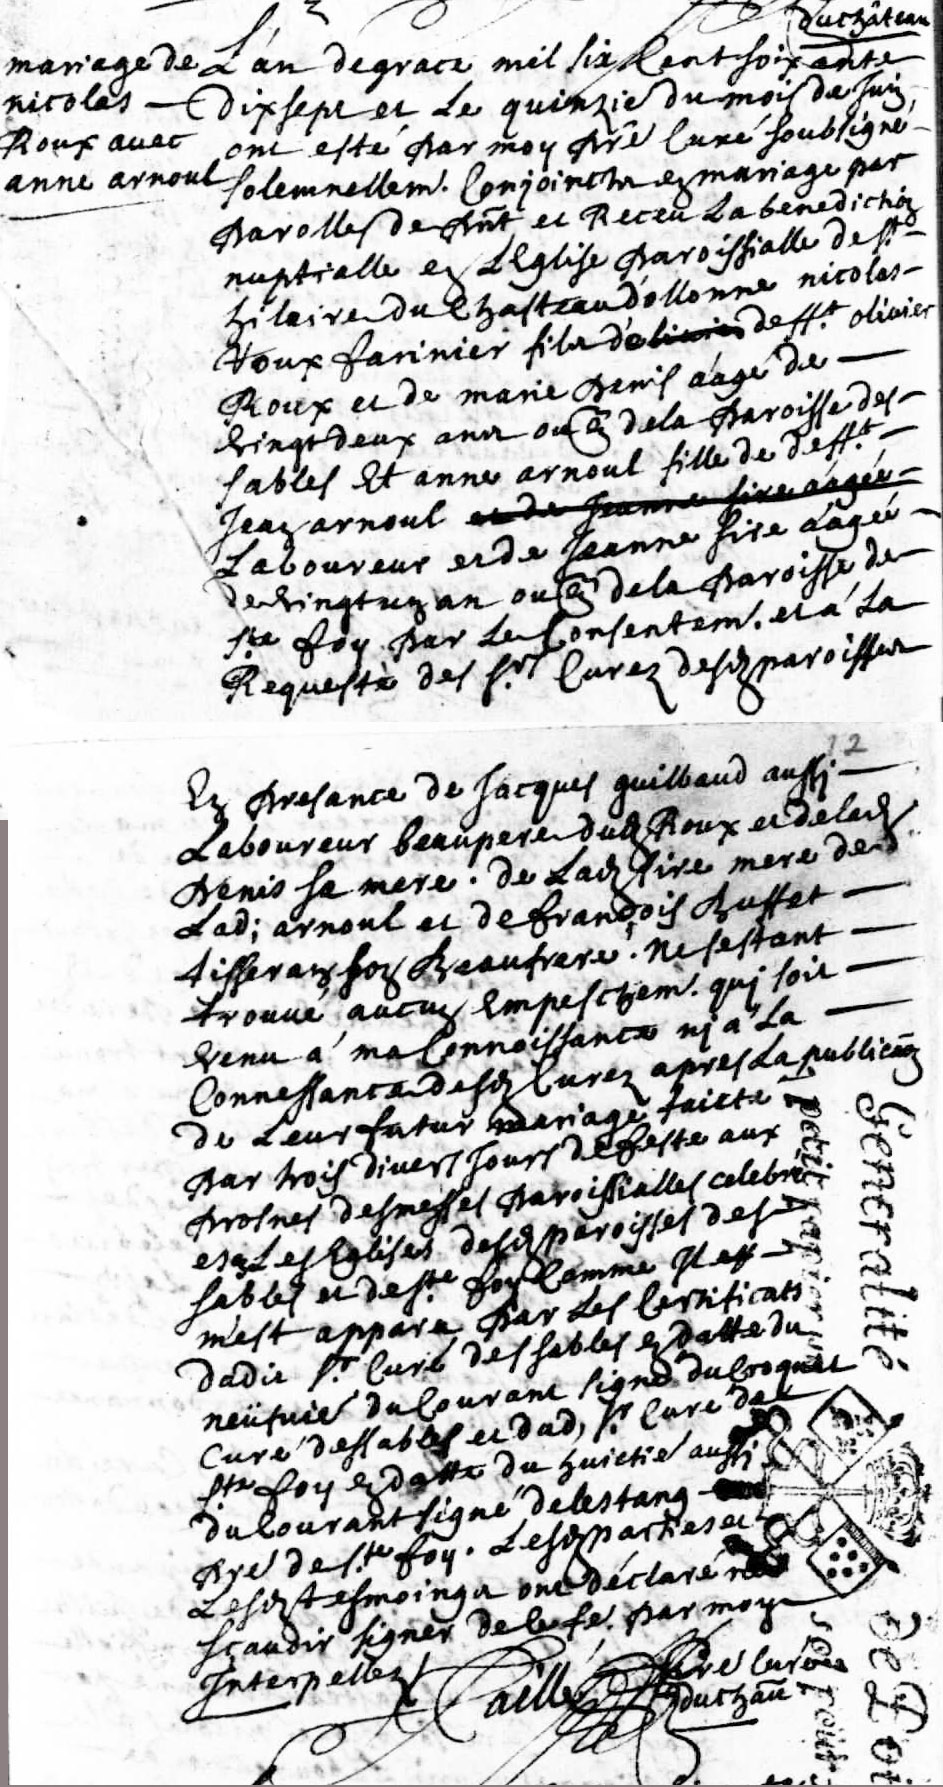 duchâteau
mariage de
nicolas
Roux avec
anne arnoul
L'an degrace mil six Cent soixante
Dixsept et Le quinzié du mois de Juin,
ont esté par moy pre Curé soubsigné
solemnellem. Conjoincts en mariage par
parolles de pnt et Receu La benediction
nuptialle en LEglise paroissialle de st
hilaire du Chasteau d'ollonne nicolas
Roux farinier fils d'olivier deff.t olivier
Roux et de marie Denis aagé de
vingt deux ans ou en dela paroisse des
sables Et anne arnoul fille de deff.t
Jean arnoul et de Jeanne sire aagée
Laboureur et de Jeanne sire aagée
de vingt un an ou en dela paroisse de
ste foy par Le Consentem. et a La
Requeste des s.rs Curez desd paroisses
12
En presance de Jacques guilbaud aussi
Laboureur beaupere dud Roux et de lad
Denis sa mere. de Lad sire mere de
Lad; arnoul et de françois Buffet
tisseran son Beaufrere. Ne sestant
trouvé aucun Empeschem. quj soit
venu a ma Connoissance nj a La
Connessance desd Curez apres La publicaon
de Leur futur mariage faicte
par trois divers Jours de feste aux
prosnes desmesses paroissialles celebré
en Les Eglises desd paroisses des
sables et de ste foy Comme Il
m'est apparu par Les Certificats
dudit s.r Curé des sables en datte du
neufvié du Courant signé du Croquet
Curé dessables et dud, s.r Curé de
ste foy en datte du huictié aussi
du Courant signé delestang
pre de s.te foy. Lesd parties et
Lesd tesmoings ont déclaré ne
scavoir signer de le fe. par moy
Interpellez
Caillé pre Curé
duchau
Generalité
petit papier
De Poi